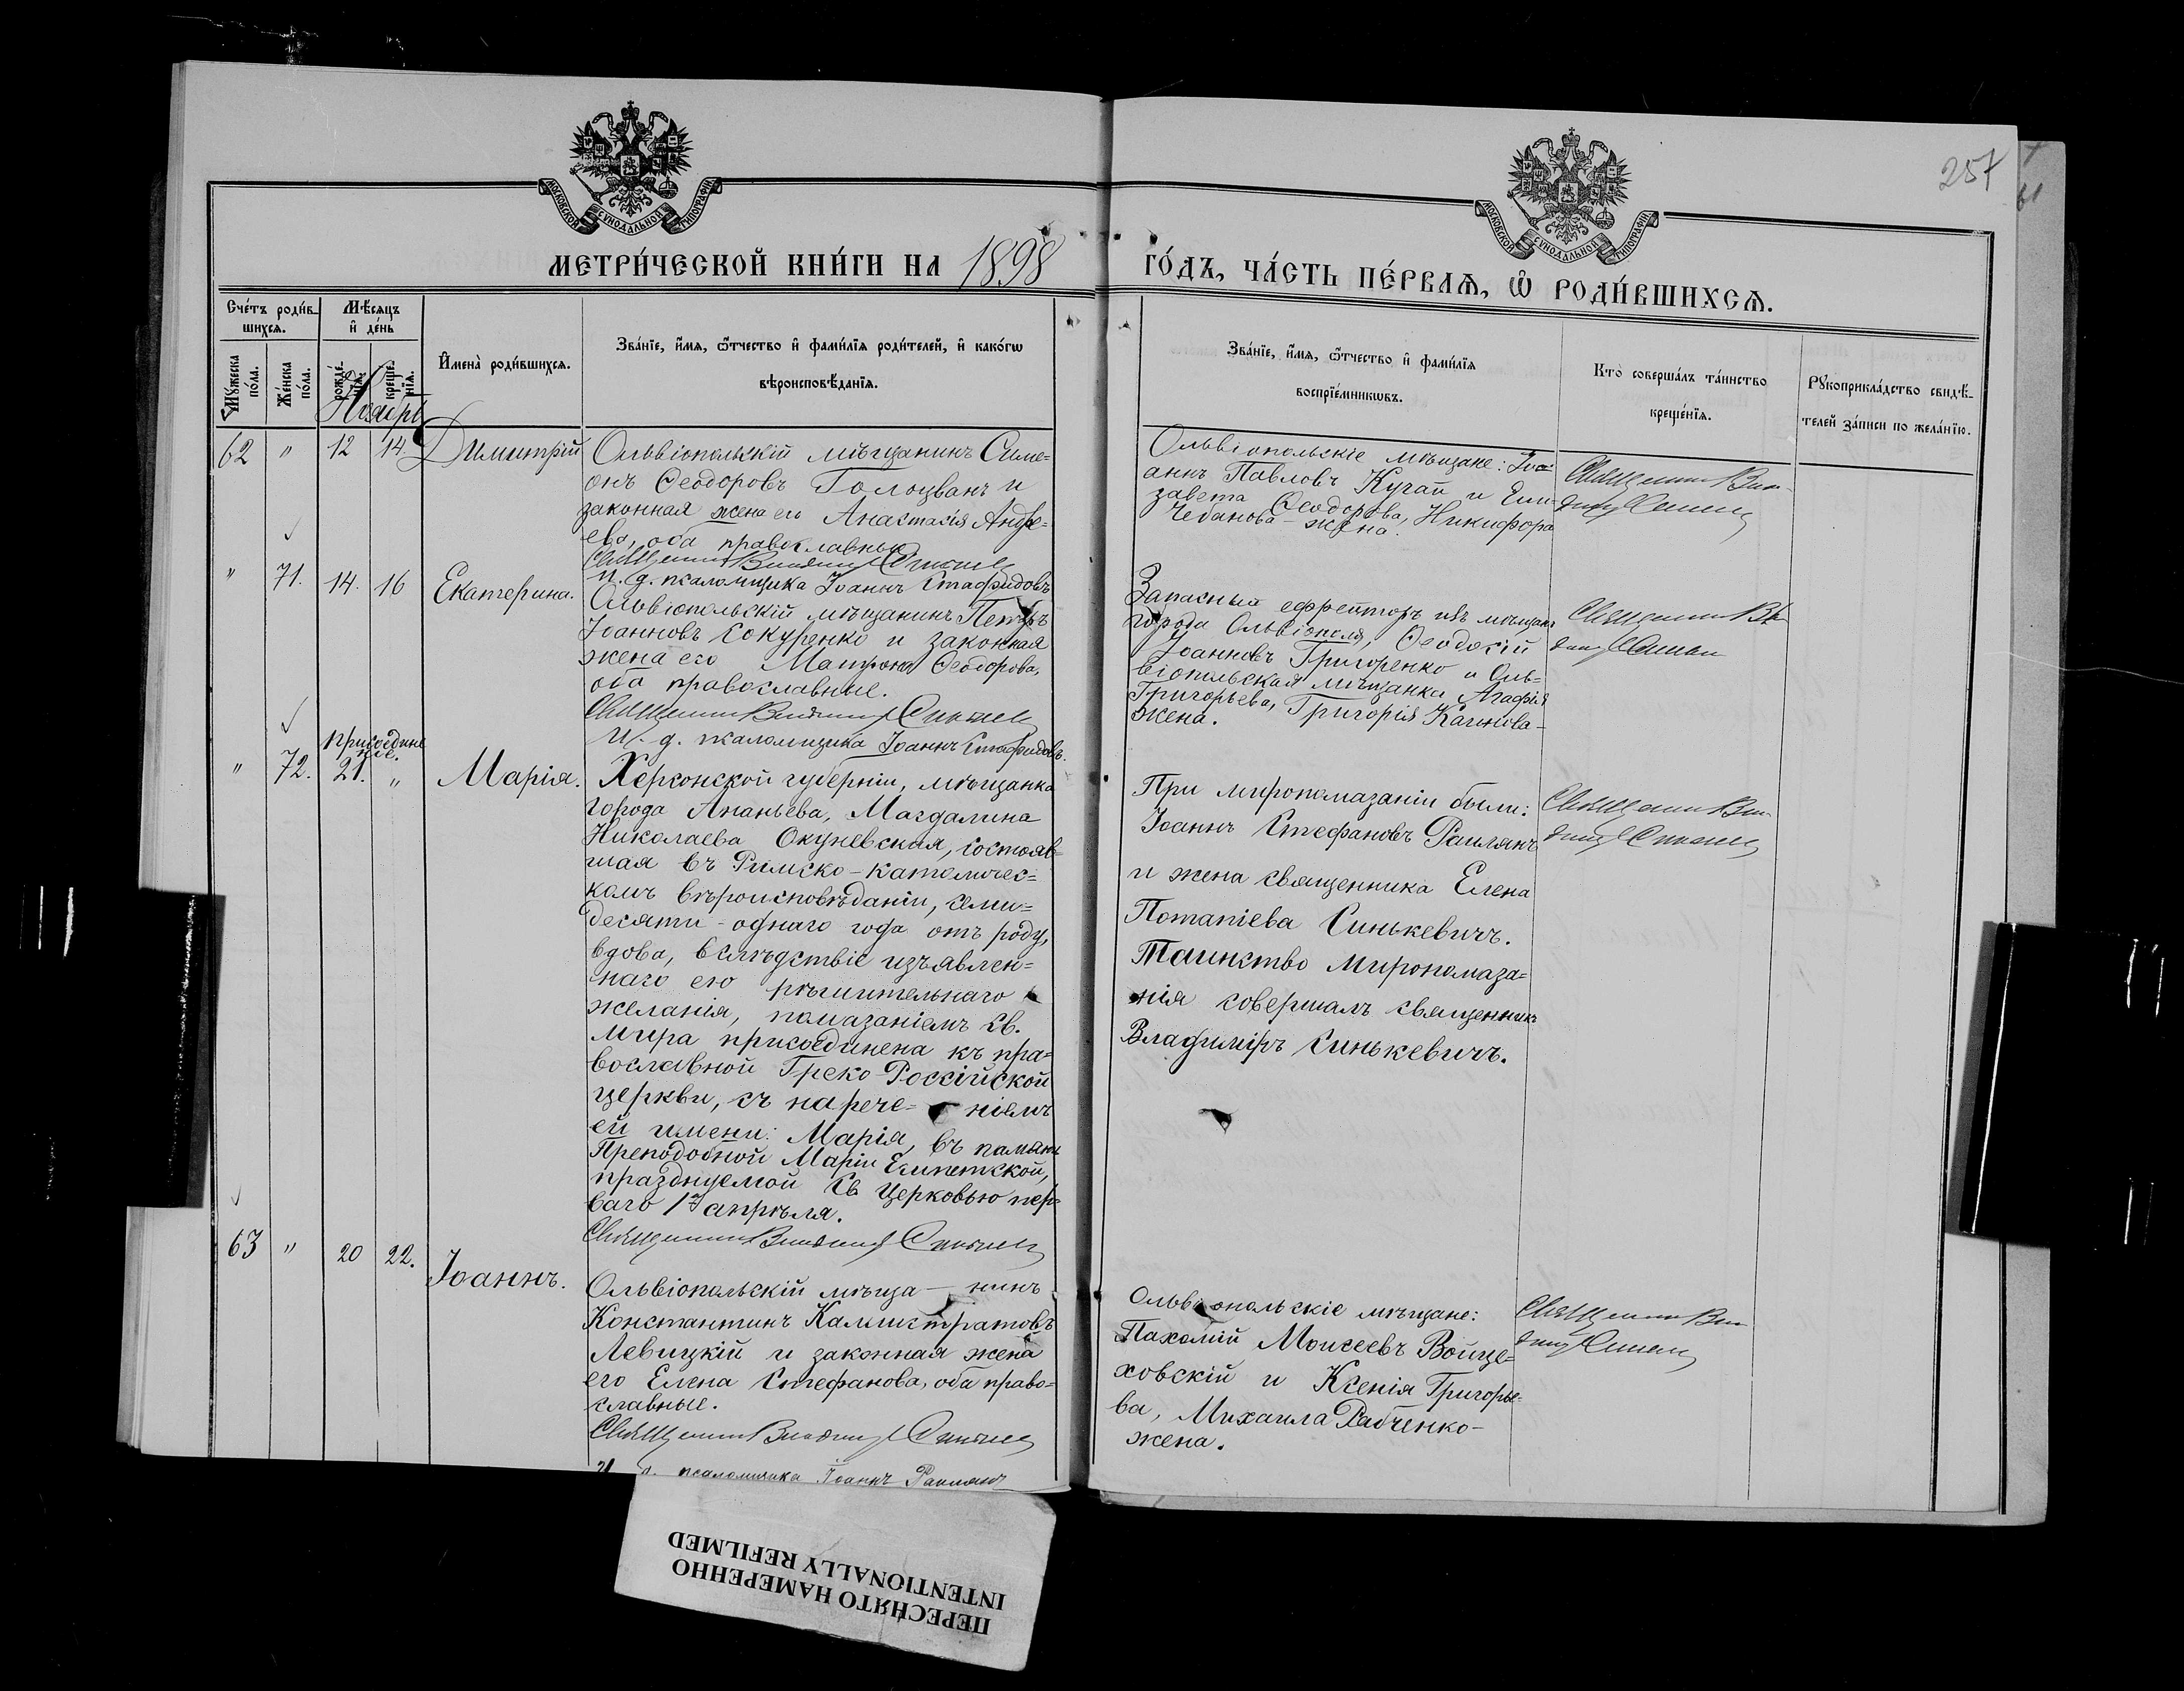 МОСКОВСКОЙ СѴНОДАЛЬНОЙ ТИПОГРАФІИ
МОСКОВСКОЙ СѴНОДАЛЬНОЙ ТИПОГРАФІИ
257
МЕТРИ́ЧЕСКОЙ КНИ́ГИ НА 1898
ГО́ДЪ, ЧА́СТЬ ПЕ́РВАѦ, Ѡ҆ РОДИ́ВШИХСѦ.
Сче́тъ роди́в-
шихсѧ.
Мѣ́сѧцъ
и҆ де́нь
Мꙋ́жеска по́ла.
Же́нска по́ла.
рожде́-
нїѧ.
креще́-
нїѧ.
И҆мена̀ роди́вшихсѧ.
Зва́нїе, и҆́мѧ, ѻ҆́тчество и҆ фами́лїѧ роди́телей, и҆ како́гѡ
вѣроисповѣ́данїѧ.
Зва́нїе, и҆́мѧ, ѻ҆́тчество и҆ фами́лїѧ
воспрїе́мникѡвъ.
Кто̀ соверша́лъ та́инство
креще́нїѧ.
Рꙋкоприкла́дство свидѣ́-
телей за́писи по жела́нїю.
Ноябрь
62 " 12 14. Димитрій
Ольвіопольскій мѣщанинъ Симе-
онъ Ѳеодоровъ Голоцванъ и
законная жена его Анастасія Андре-
ева, оба православные
Священникъ Владимір Синькев
и. д. псаломщика Іоаннъ Стафидовъ
Ольвіопольскіе мѣщане: Іоа-
аннъ Павловъ Кучап и Ели-
завета Ѳеодорова, Никифора
Чебанова - жена.
Священник Вла-
димір Синькев
" 71. 14. 16 Екатерина.
Ольвіопольскій мѣщанинъ Петръ
Іоанновъ Сокуренко и законная
жена его Матрона Ѳеодорова,
оба православные.
Священник Владимір Синькев
И. д. псаломщика Іоаннъ Стафидовъ.
Запасный ефрейторъ изъ мѣщанъ
города Ольвіополя, Ѳеодосій
Іоанновъ Григоренко и Оль-
віопольская мѣщанка Агафія
Григорьева, Григорія
жена.
Священник Вла-
димір Синькев
присоедине
ніе.
" 72. 21. " Марія.
Херсонской губерніи, мѣщанка
города Ананьева, Магдалина
Николаева Окуневская, состояв-
шая въ Римско-католичес-
комъ вѣроисповѣданіи, семи-
десяти-однаго года отъ роду,
вдова, вслѣдствіе изъявлен-
наго ею рѣшительнаго
желанія, помазаніемъ св.
мира присоединена къ пра-
вославной Греко-Россійской
церкви, съ нарече- ніемъ
ей имени: Марія, въ память
Преподобной Маріи Египетской,
празднуемой Св Церковью пер-
ваго 1го апрѣля.
Священник Владимір Синькев
При миропомазаніи были:
Іоаннъ Стефановъ Раилянъ
и жена священника Елена
Потапіева Синькевичъ.
Таинство Миропомаза-
нія совершалъ священникъ
Владиміръ Синькевичъ.
Священник Вла-
димір Синькев
63 " 20 22. Іоаннъ.
Ольвіопольскій мѣща-нинъ
Константинъ Калистратовъ
Левицкій и законная жена
его Елена Стефанова, оба право-
славные.
Священник Владимір Синькев
И д. псаломщика Іоаннъ Раилянъ
Ольвіопольскіе мѣщане:
Пахомій Моисеевъ Войце-
ховскій и Ксенія Григорье-
ва, Михаила Рабченко-
жена.
Священник Вла-
димір Синькев
ПЕРЕСНЯТО НАМЕРЕННО
INTENTIONALLY REFILMED